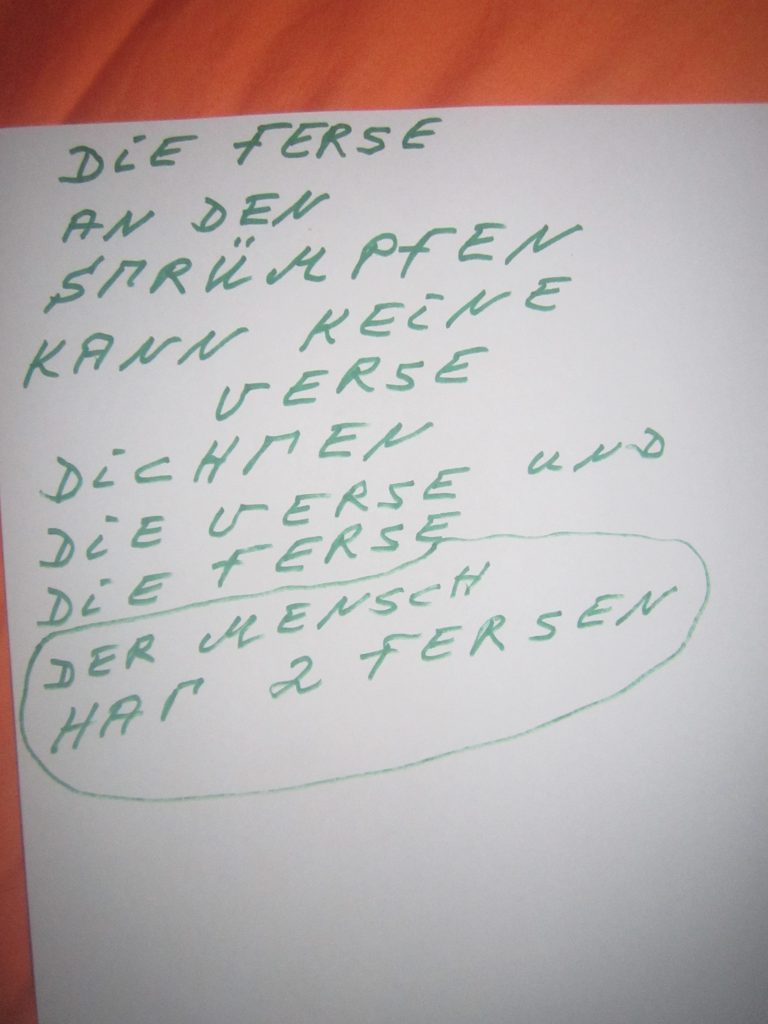 DiE FERSE
AN DEN
STRÜMPFEN
KANN KEiNE
VERSE
DiCHTEN
DiE VERSE UND
DiE FERSE
DER MENSCH
HAT 2 FERSEN